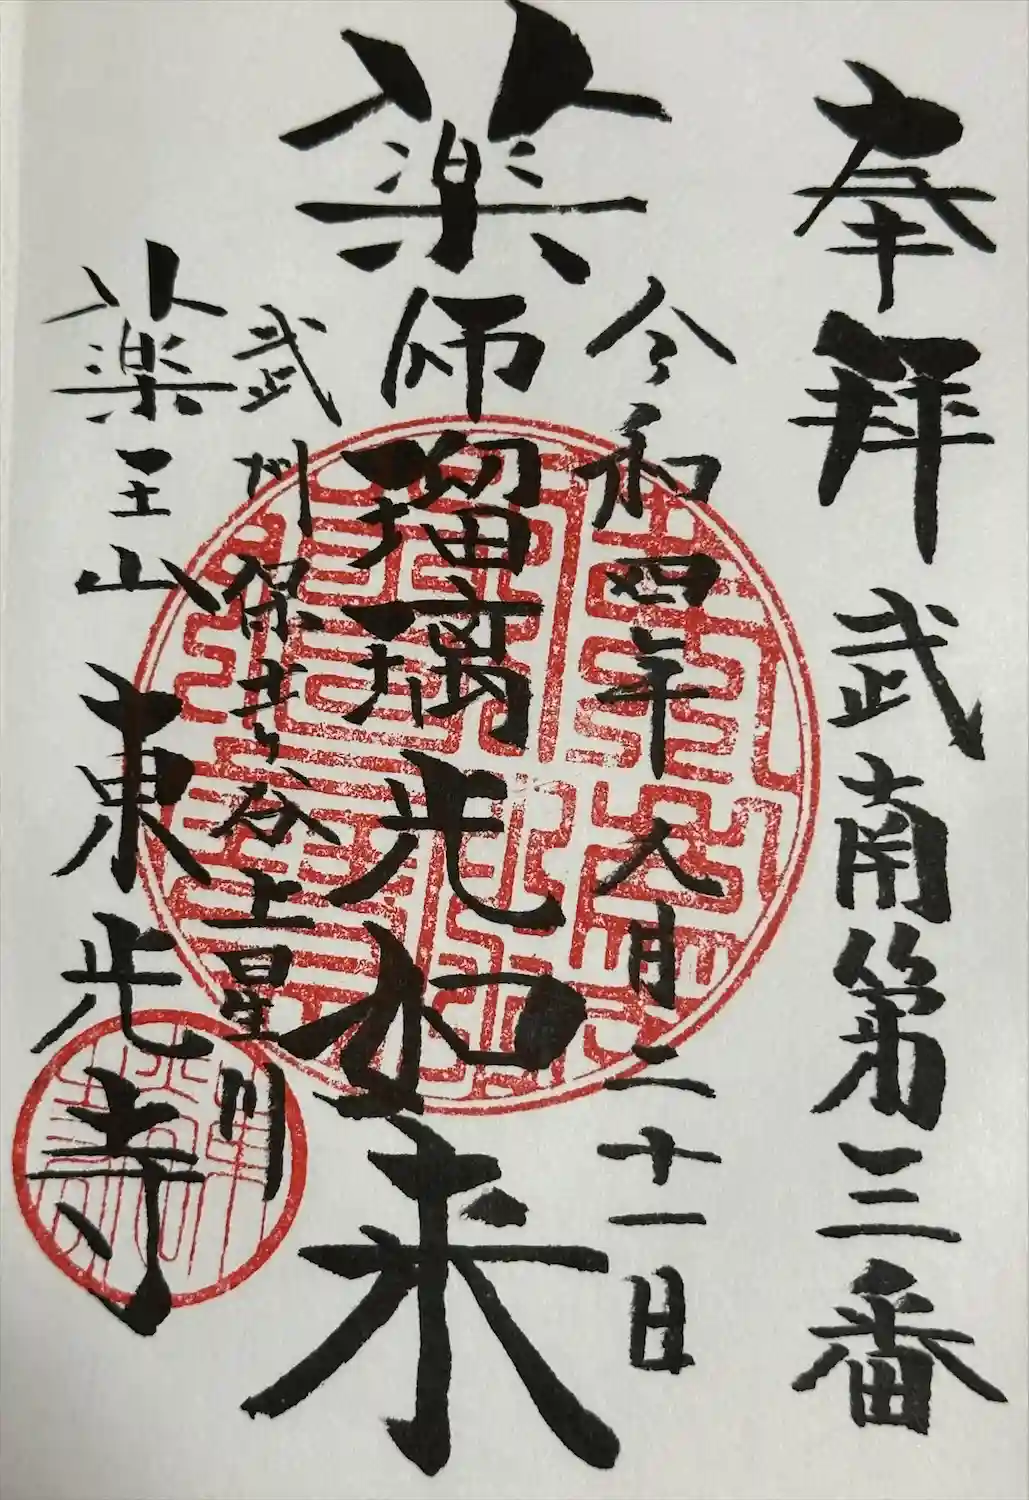 奉拝 武南第三番
令和四年八月二十一日
薬師瑠璃光如来
武州 保土ヶ谷 上星川
薬王山 東光寺